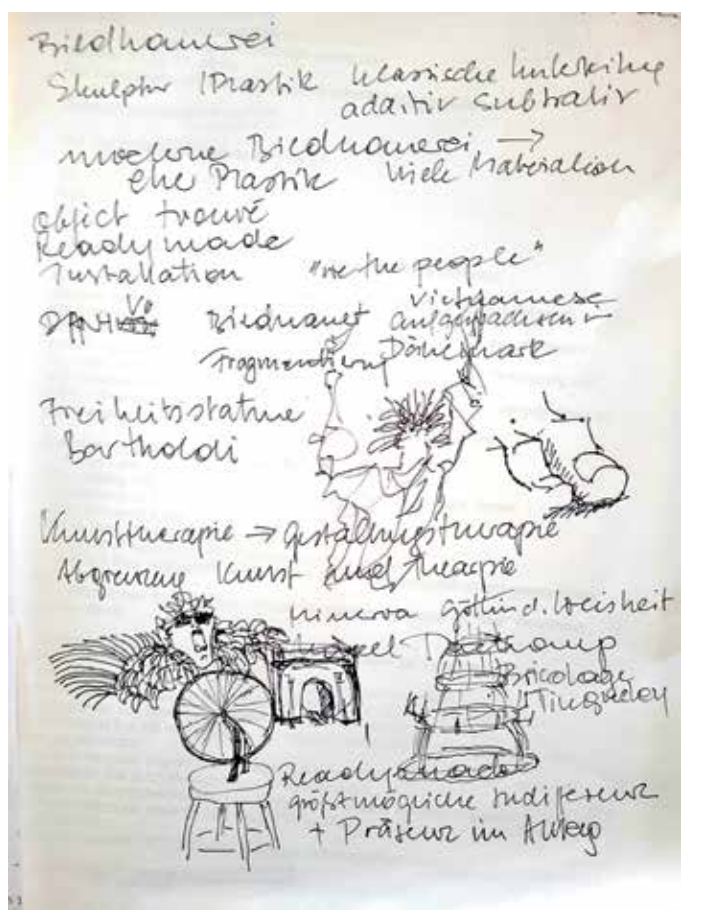 Bildhauerei
Skulptur / Plastik klassische
additiv subtraktiv
moderne Bildhauerei →
ehe Plastik viele Materialien
object trouvé
Readymade
Installation "we the people"
Vo
DANH Bildhauer Vietnamese
aufgewachsen in
Fragmentierung Dänemark
Freiheitsstatue
Bartholdi
Kunsttherapie → Gestaltungstherapie
Abgrenzung Kunst und Therapie
Minerva Göttin d. Weisheit
Marcel Duchamp
Bricolage
Tinguely
Readymade
größtmögliche Indiferenz
+ Präsenz im Alltag